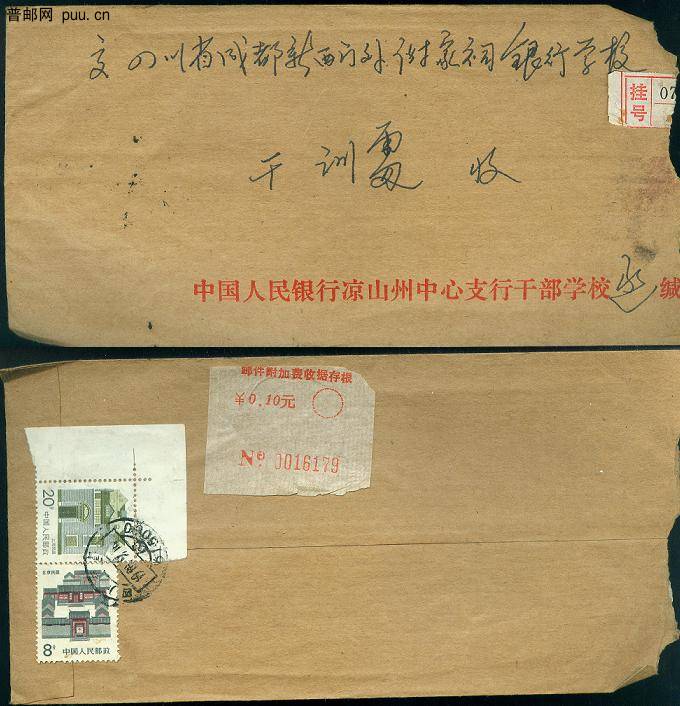 普邮网 puu.cn
交 四川省成都新西门外付家祠银行学校
挂号 07
干训 收
中国人民银行凉山州中心支行干部学校 缄
邮件附加费收据存根
¥0.10元
№ 0016179
20分
中国人民邮政
北京民居
8分
中国人民邮政